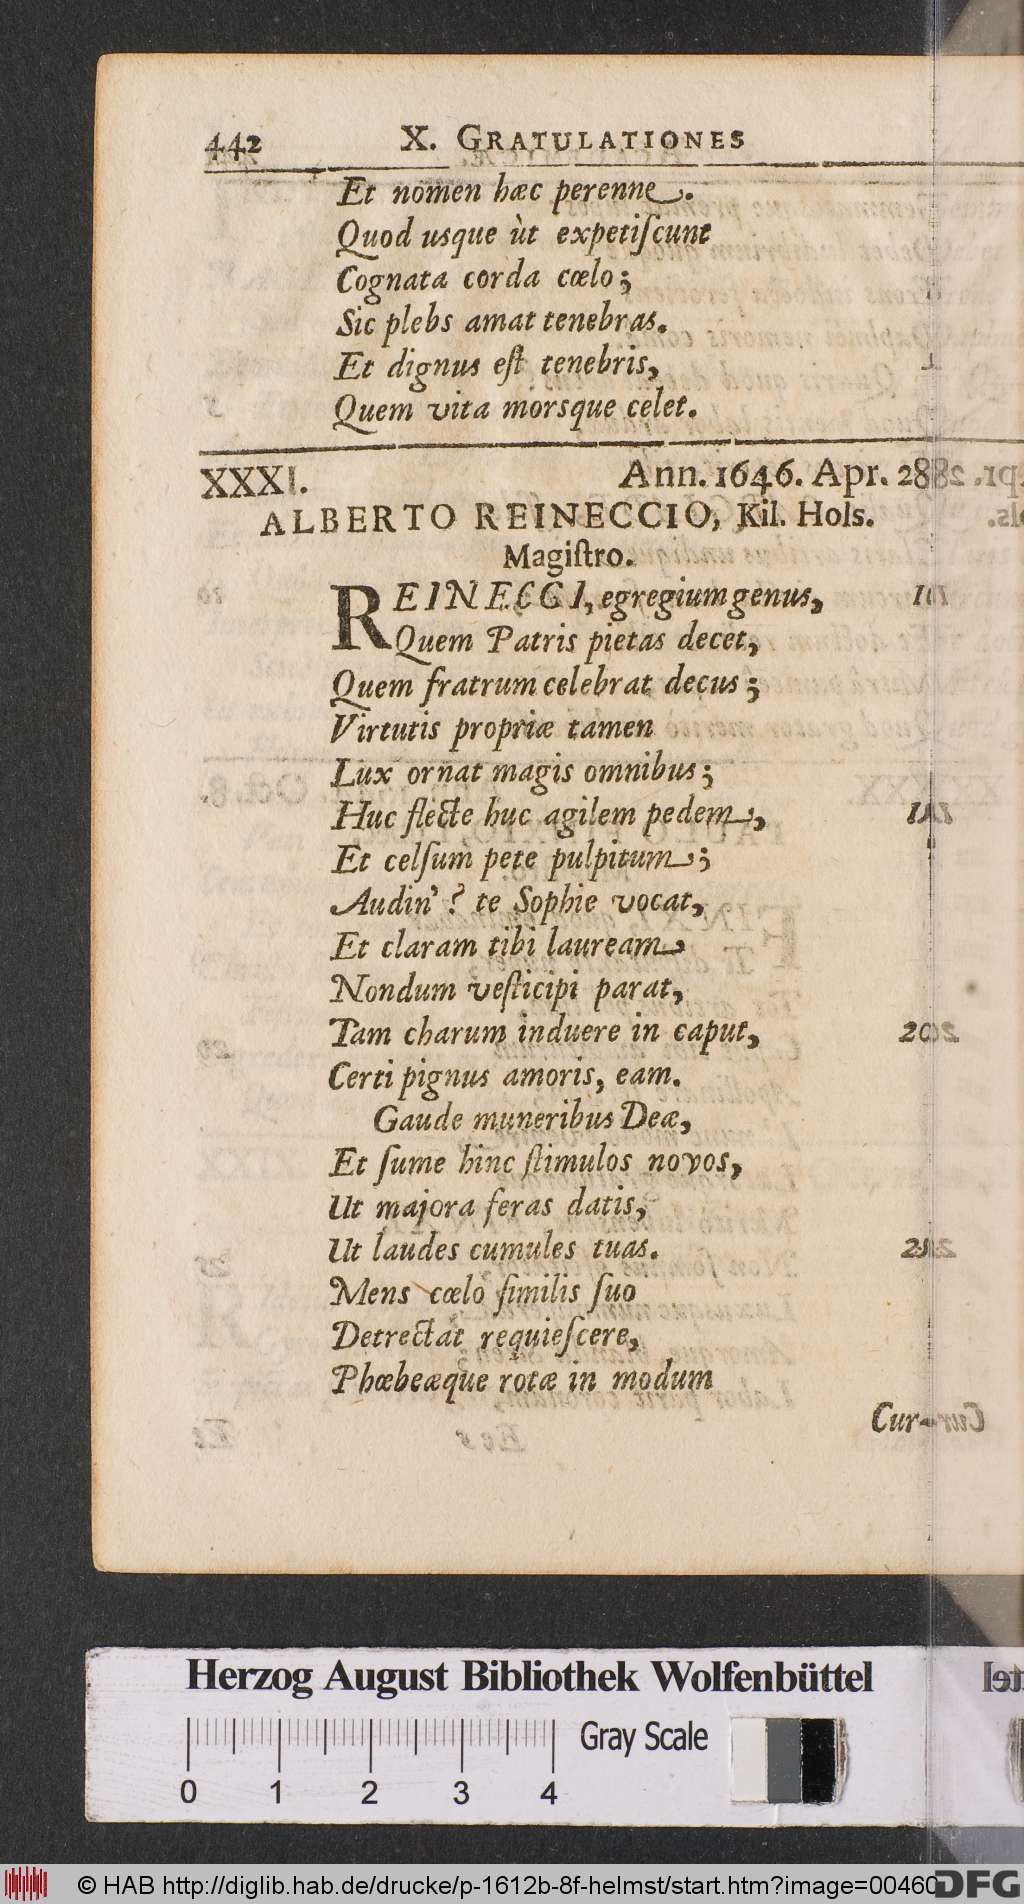 442 X. GRATULATIONES
Et nomen hæc perenne.
Quod usque ùt expetiſcunt
Cognata corda cœlo;
Sic plebs amat tenebras.
Et dignus eſt tenebris,
Quem vita morsque celet.
XXXI. Ann. 1646. Apr. 28
ALBERTO REINECCIO, Kil. Hols.
Magiſtro.
REINECCI, egregium genus,
Quem Patris pietas decet,
Quem fratrum celebrat decus;
Virtutis propriæ tamen
Lux ornat magis omnibus;
Huc flecte huc agilem pedem,
Et celſum pete pulpitum;
Audin'? te Sophie vocat,
Et claram tibi lauream
Nondum veſticipi parat,
Tam charum induere in caput,
Certi pignus amoris, eam.
Gaude muneribus Deæ,
Et ſume hinc ſtimulos novos,
Ut majora feras datis,
Ut laudes cumules tuas.
Mens cœlo ſimilis ſuo
Detrectat requieſcere,
Phœbeæque rotæ in modum
Cur-
Herzog August Bibliothek Wolfenbüttel
Gray Scale
0 1 2 3 4
© HAB http://diglib.hab.de/drucke/p-1612b-8f-helmst/start.htm?image=00460
DFG